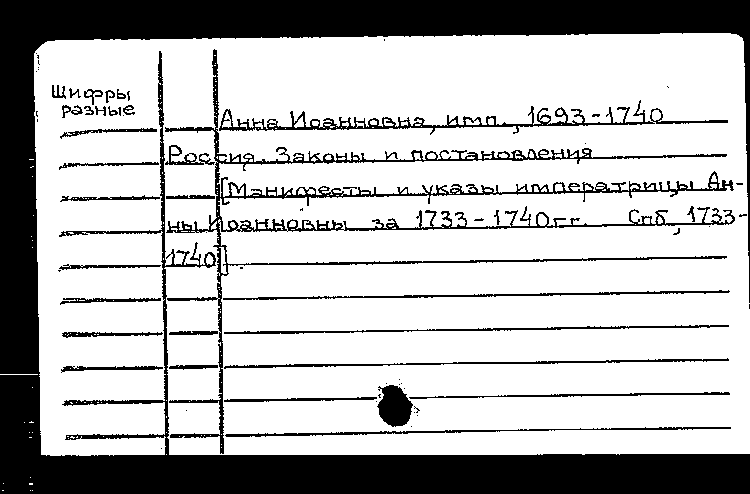 Шифры
разные
Анна Иоанновна, имп., 1693-1740
Россия. Законы и постановления
[Манифесты и указы императрицы Ан-
ны Иоанновны за 1733-1740гг. Спб, 1733-
1740].